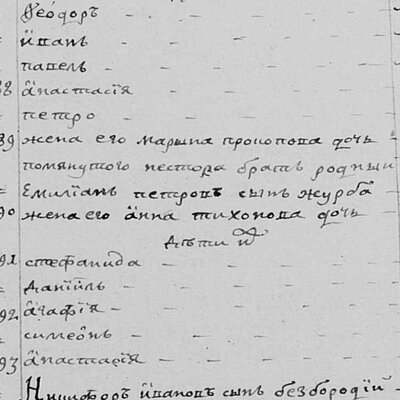 Ѳеодоръ
їѡаннъ
павелъ
88 анастасїя
петро
89 жена его марѳина прокопова дочь
помянутого нестора братъ родный
Емилїанъ петровъ сынъ журба
90 жена его анна тихонова дочь
дѣти их
91 стефанида
данїилъ
92 агафїя
симеонъ
93 анастасїя
Никифоръ ївановъ сынъ безбородїй